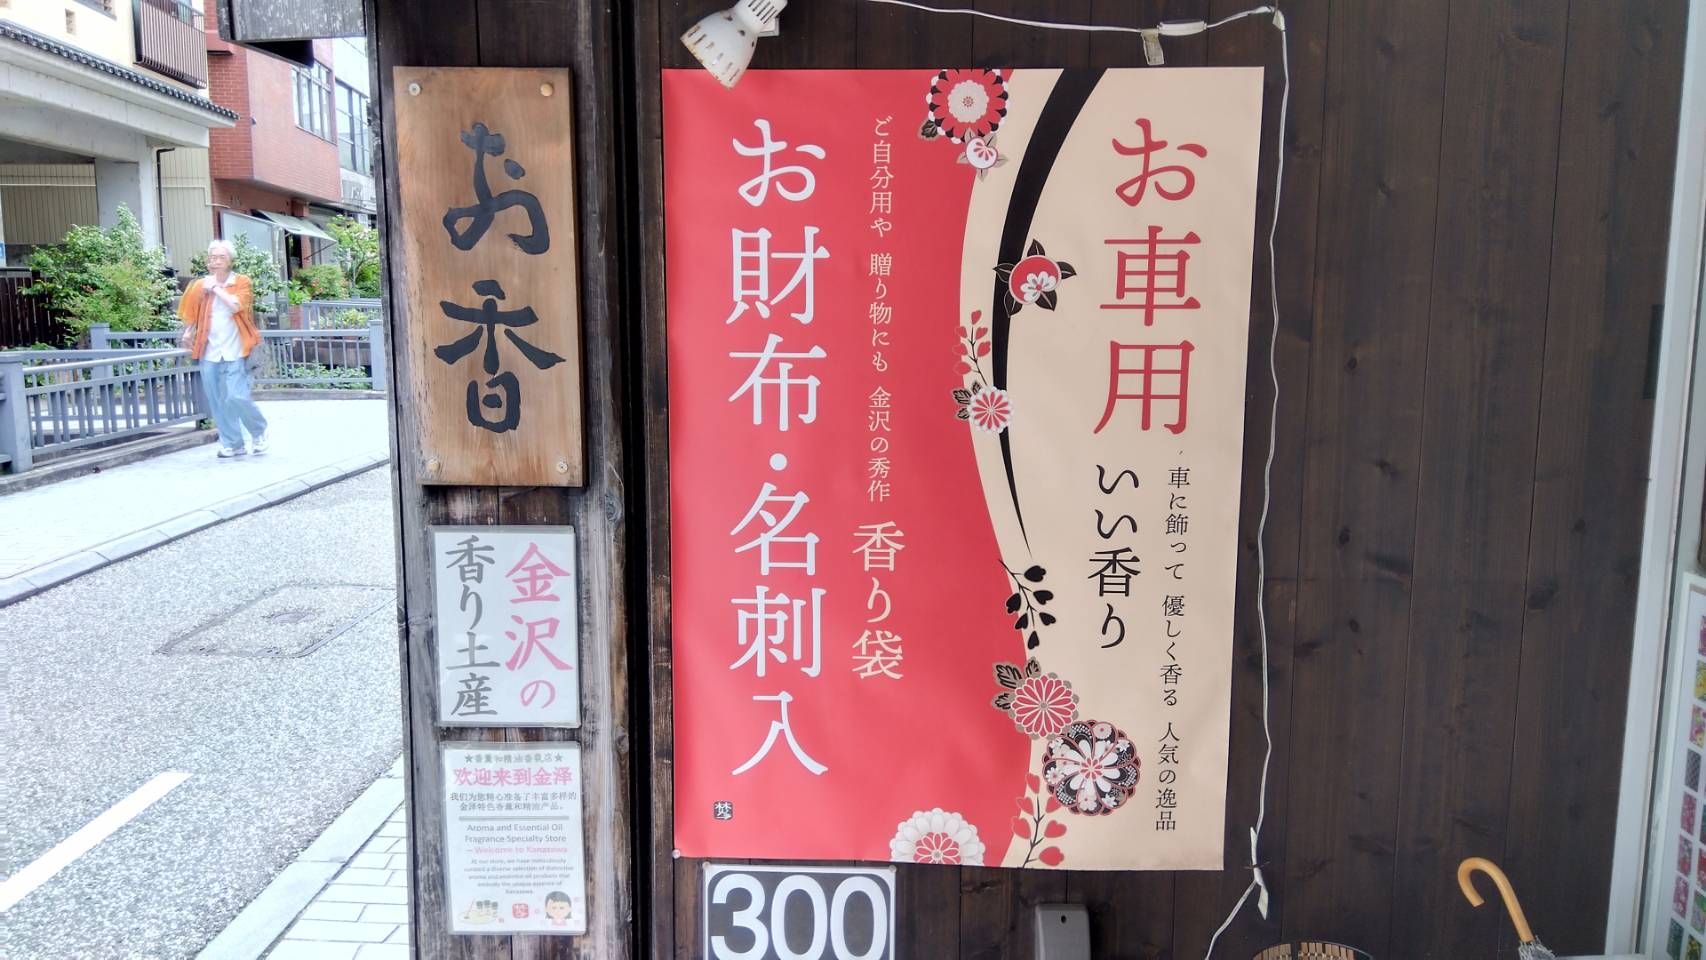 お香
金沢の
香り土産
★香薰和精油香氛店★
欢迎来到金泽
我们为您精心准备了丰富多样的
金泽特色香薰和精油产品。
Aroma and Essential Oil
Fragrance Specialty Store
– Welcome to Kanazawa
At our store, we have meticulously
curated a diverse selection of distinctive
aroma and essential oil products that
embody the unique essence of
Kanazawa.
お車用
いい香り
車に飾って 優しく香る 人気の逸品
ご自分用や 贈り物にも 金沢の秀作
香り袋
お財布・名刺入
300